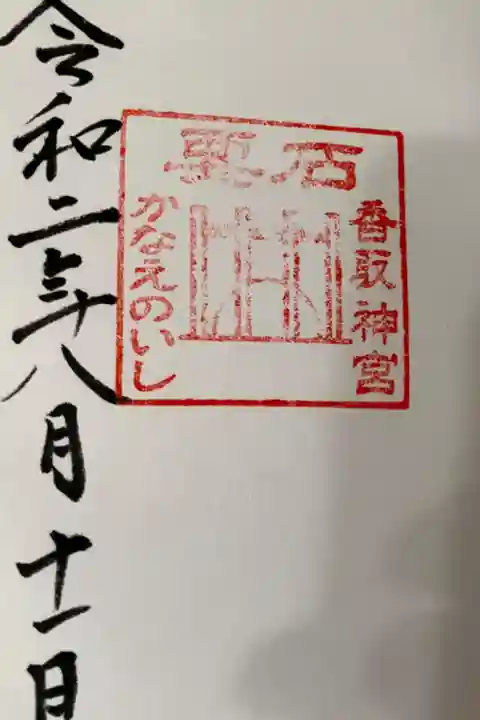 要石
香取神宮
かなえのいし
令和二年八月十一日